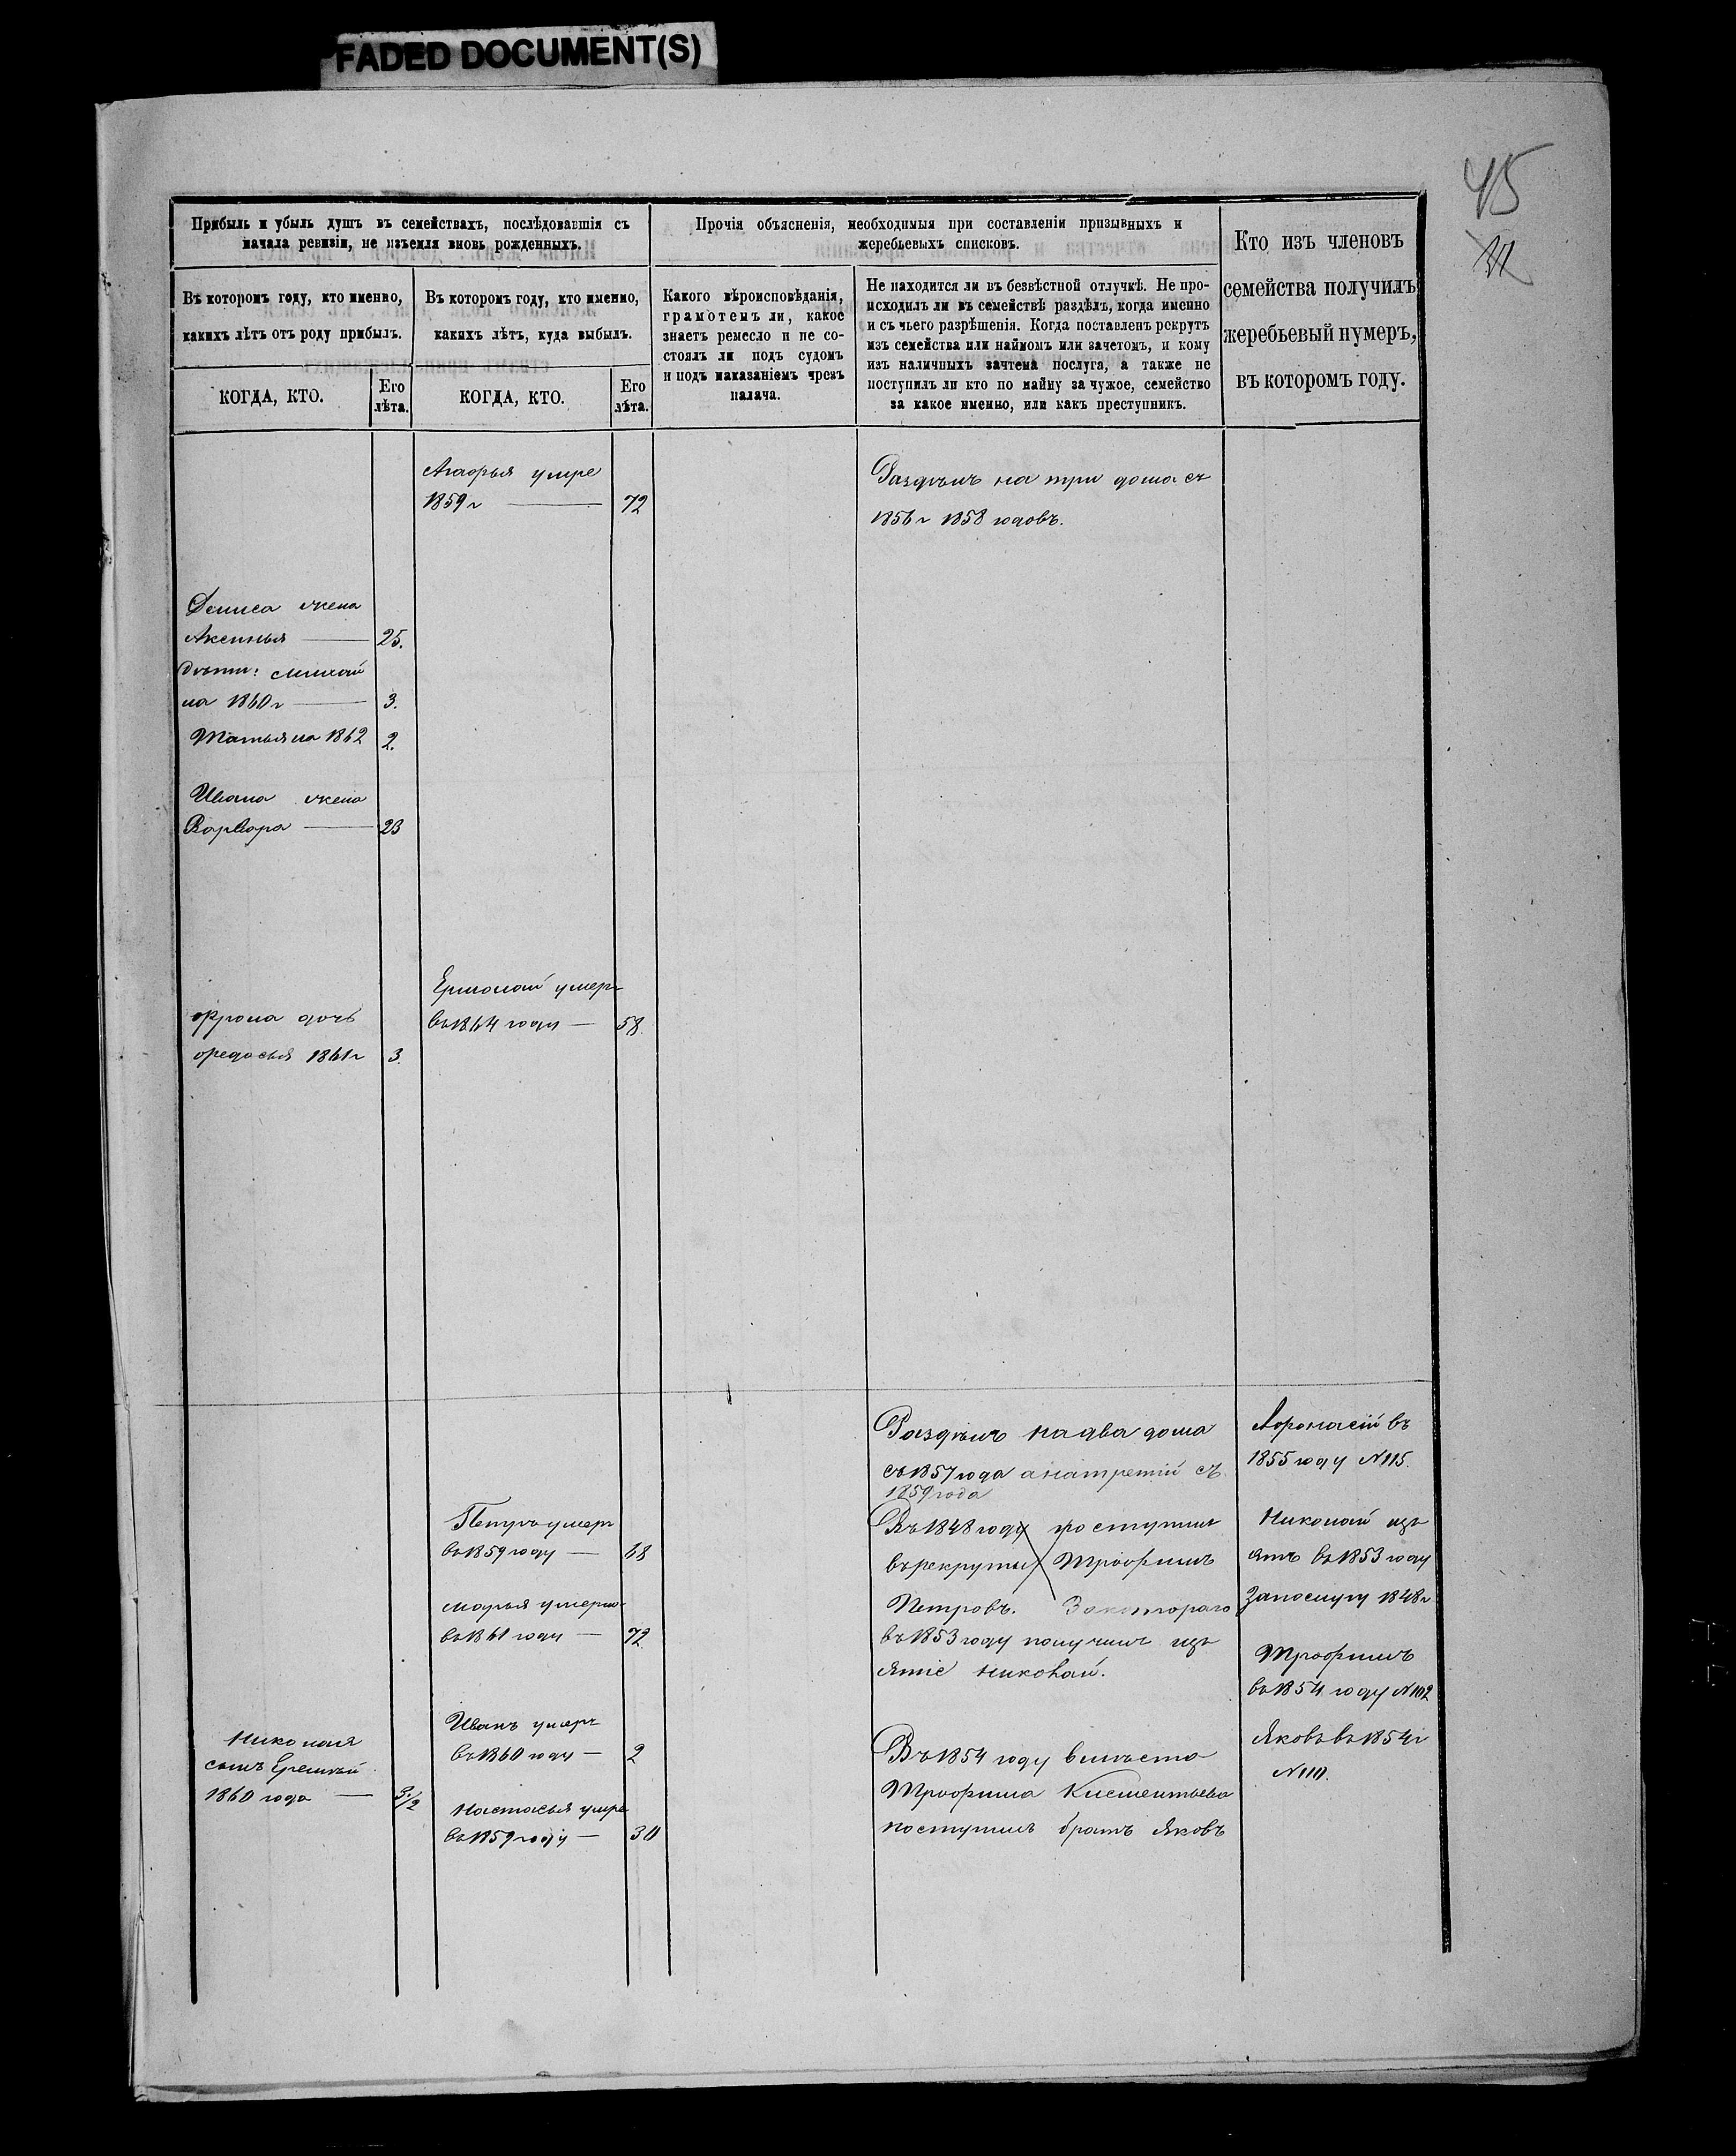 FADED DOCUMENT(S)
45
Прибыль и убыль душъ въ семействахъ, послѣдовавшія съ
начала ревизіи, не изъемля вновь рожденныхъ.
Въ которомъ году, кто именно,
какихъ лѣтъ отъ роду прибылъ.
КОГДА, КТО.
Его
лѣта.
Въ которомъ году, кто именно,
какихъ лѣтъ, куда выбылъ.
КОГДА, КТО.
Его
лѣта.
Прочія объясненія, необходимыя при составленіи призывныхъ и
жеребьевыхъ списковъ.
Какого вѣроисповѣданія,
грамотенъ ли, какое
знаетъ ремесло и не со-
стоялъ ли подъ судомъ
и подъ наказаніемъ чрезъ
палача.
Не находится ли въ безвѣстной отлучкѣ. Не про-
исходилъ ли въ семействѣ раздѣлъ, когда именно
и съ чьего разрѣшенія. Когда поставленъ рекрутъ
изъ семейства или наймомъ или зачетомъ, и кому
изъ наличныхъ зачтена послуга, а также не
поступилъ ли кто по найму за чужое, семейство
за какое именно, или какъ преступникъ.
Кто изъ членовъ
семейства получилъ
жеребьевый нумеръ,
въ которомъ году.
умре
1859 г — 72
Раздѣлъ на три дома съ
1856 г 1858 годовъ.
Дениса жена
Аксинья — 25.
Дѣти: Михай
ла 1860 г — 3.
Татьяна 1862 2.
Ивана жена
Варвара — 23
Ермолай умеръ
въ 1864 году — 58.
Фрола дочь
Федосья 1861 г 3.
Раздѣлъ на два дома
съ 1857 года а на третій съ
1859 года
Афонасій въ
1855 году № 115.
Петръ умеръ
въ 1859 году — 68
Марья умерла
въ 1861 году — 72
Въ 1848 году поступилъ
въ рекруты Трофимъ
Петровъ. За котораго
въ 1853 году получилъ изъ
ятіе Николай.
Николай изъ
ятъ въ 1853 году
За послугу 1848 г
Трофимъ
въ 1854 году № 102
Яковъ въ 1854 г
№ 110.
Иванъ умеръ
въ 1860 году — 2
Настасья умре
въ 1859 году — 30
Николая
сынъ Еремѣй
1860 года — 3½
Въ 1854 году вмѣсто
Трофима Клементьева
поступилъ братъ Яковъ